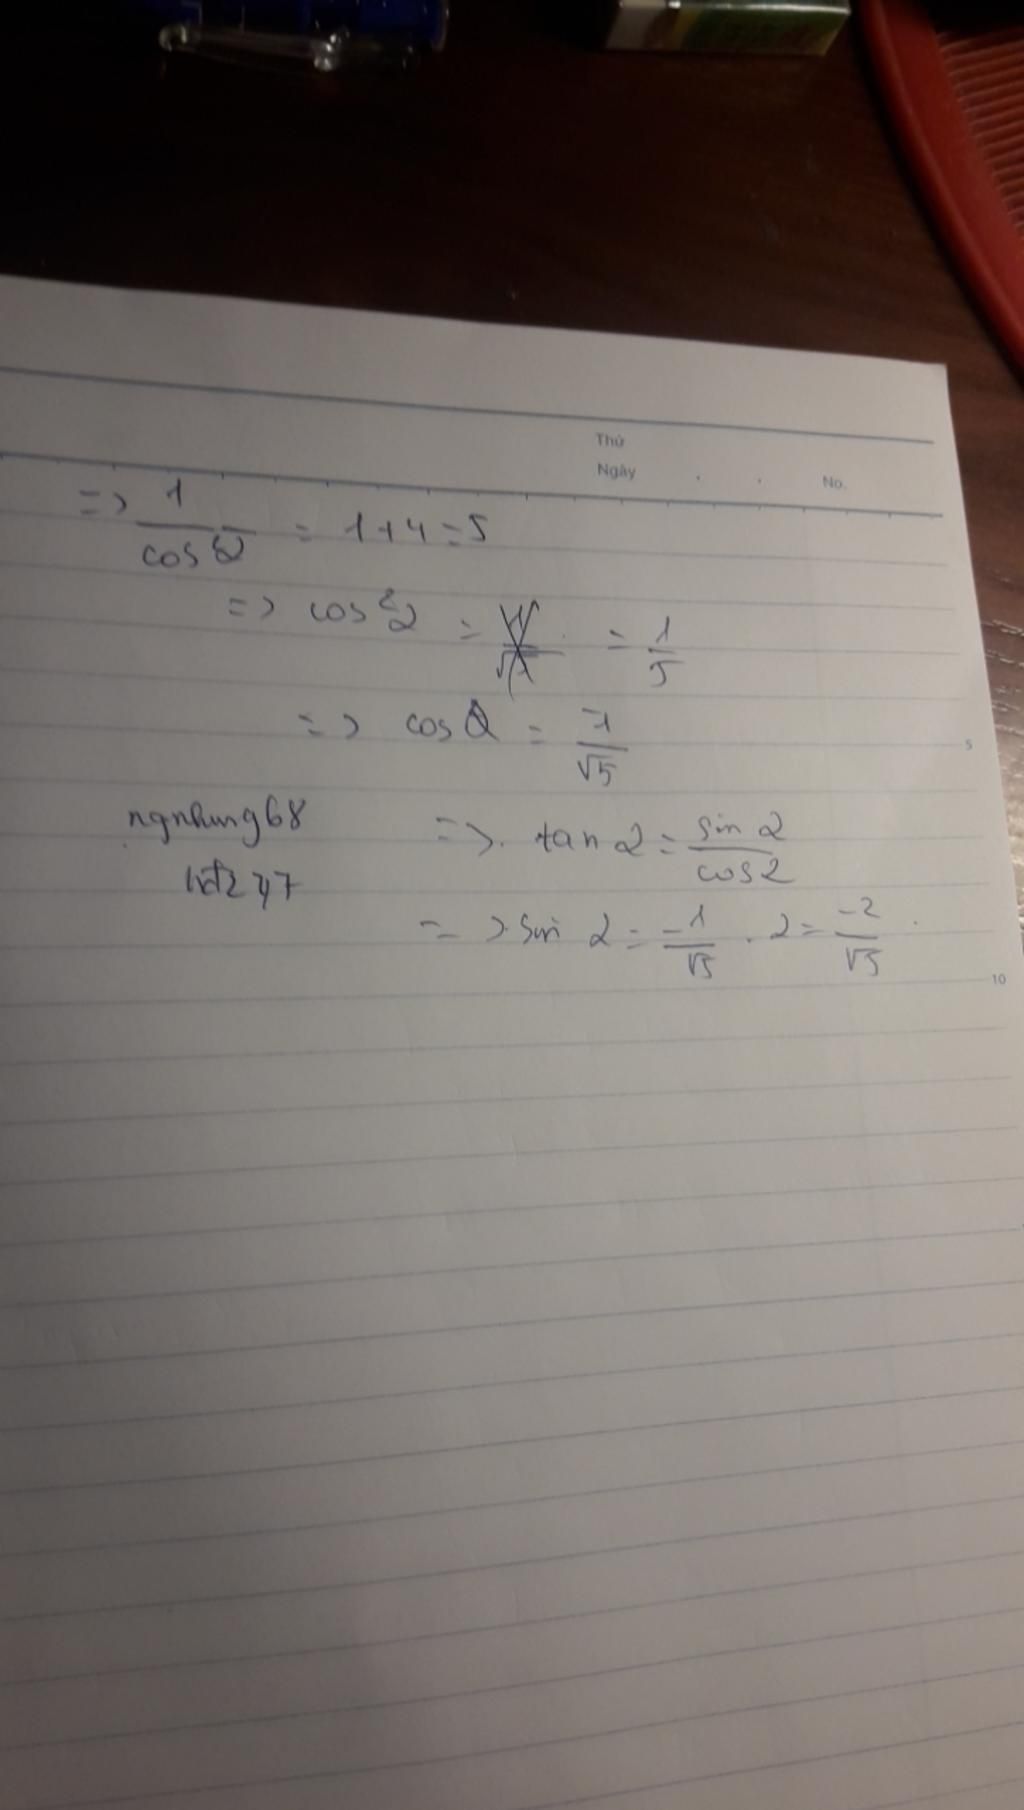 Thứ
Ngày . . No.
=> 1/cos²α = 1+4=5
=> cos²α = = 1/5
=> cos α = -1/√5
5
ngnhung68
=> tan α = sin α/cos α
247
=> sin α = -1/√5 . 2 = -2/√5
10